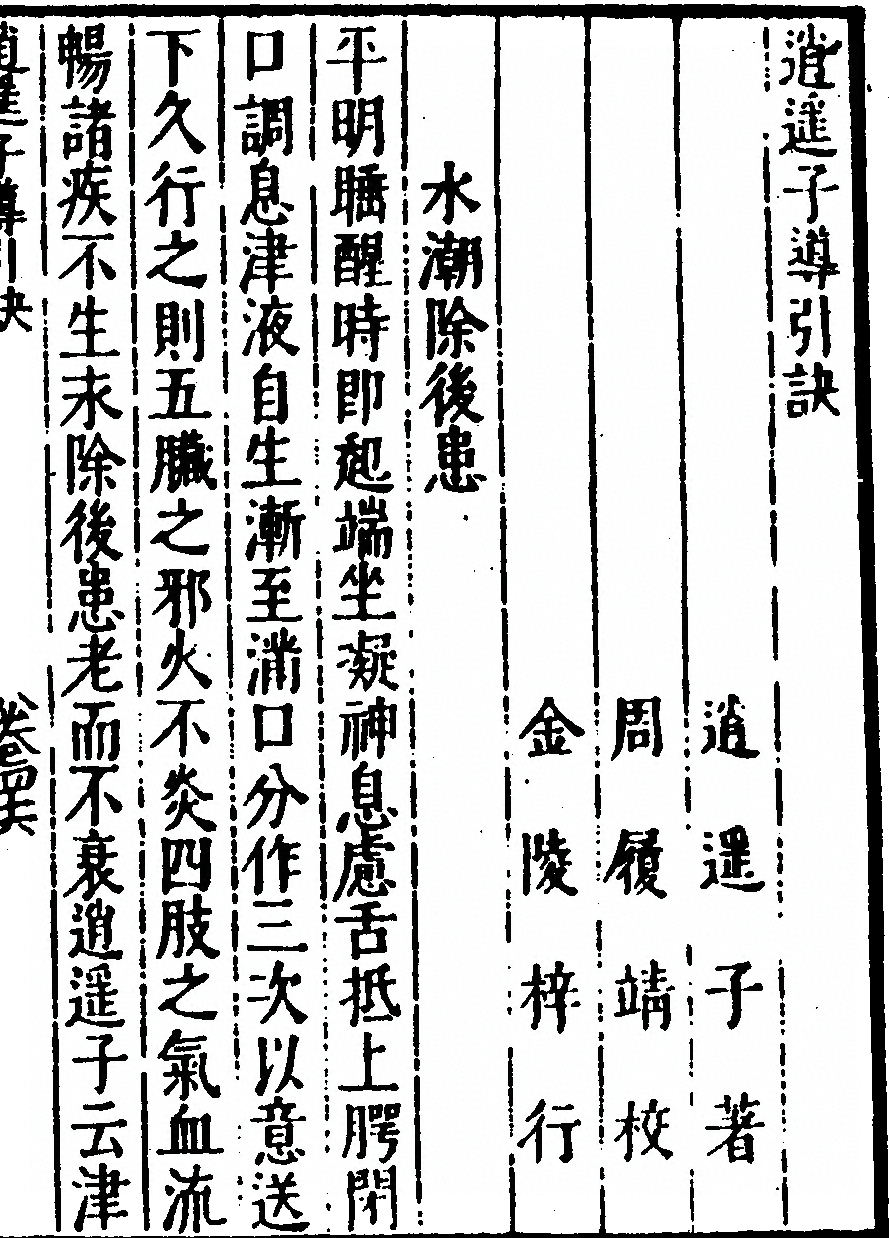 逍遥子導引訣
逍遥子著
周履靖校
金陵梓行
水潮除後患
平明睡醒時即起端坐凝神息慮舌抵上腭閉
口調息津液自生漸至滿口分作三次以意送
下久行之則五臟之邪火不炎四肢之氣血流
暢諸疾不生永除後患老而不衰逍遥子云津
逍遥子導引訣
卷四六